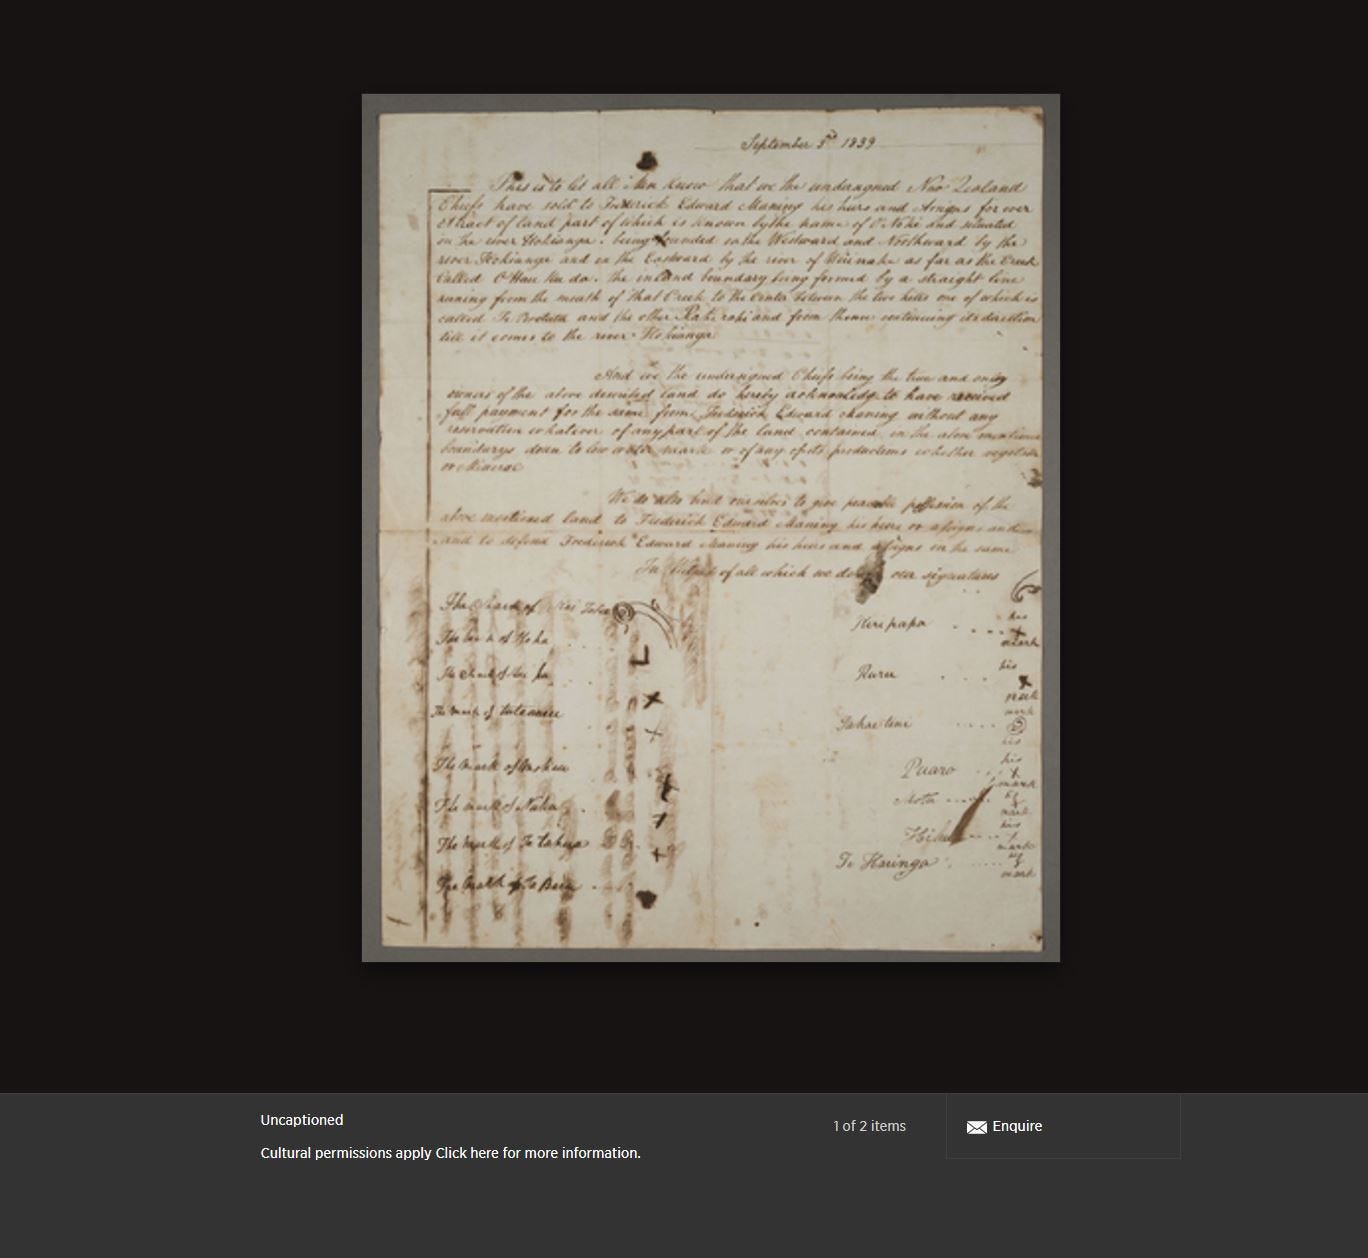 September 3rd 1839
This is to let all Men Know that we the undersigned New Zealand
Chiefs have sold to Frederick Edward Maning his heirs and Assigns for ever
A tract of land part of which is known by the name of and situated
on the river Hokianga. being bounded on the Westward and Northward by the
river Hokianga and on the Eastward by the river of as far as the Creek
Called the inland boundary being formed by a straight line
runing from the mouth of that Creek to the Center between the two hills one of which is
called Te and the other and from thence continuing its direction
till it comes to the river Hokianga
And we the undersigned Chiefs being the true and only
owners of the above described land do hereby acknowledge to have received
full payment for the same from Frederick Edward Maning without any
reservation whatever of any part of the land contained in the above mentioned
boundarys down to low water mark or of any of its productions whether
or Mineral
We do also bind ourselves to give peacable possession of the
above mentioned land to Frederick Edward Maning his heirs or assigns and
and to defend Frederick Edward Maning his heirs and assigns in the same
In of all which we do our signatures
The mark of
The mark of
The mark of
The mark of
The mark of
The mark of
The mark of Te
The mark of Te
Kiripapa his mark
Ruru his mark
mark his
Paaro his mark
his mark
mark
Te Karinga mark
Uncaptioned
Cultural permissions apply Click here for more information.
1 of 2 items
Enquire